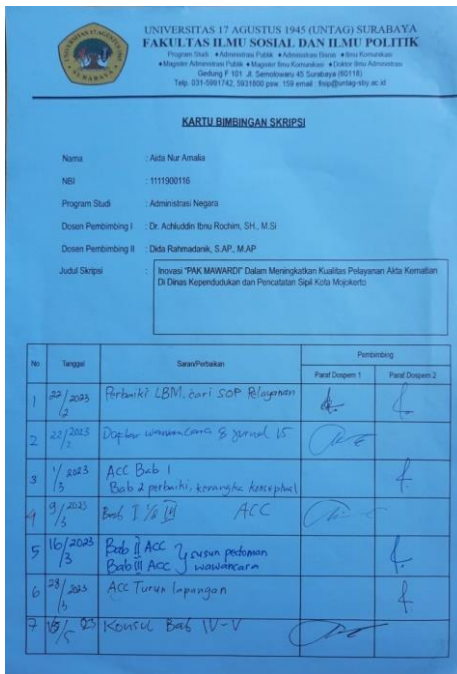 UNIVERSITAS 17 AGUSTUS 1945 (UNTAG) SURABAYA
FAKULTAS ILMU SOSIAL DAN ILMU POLITIK
Program Studi ♦Administrasi Publik ♦Administrasi Bisnis ♦Ilmu Komunikasi
♦Magister Administrasi Publik ♦Magister Ilmu Komunikasi ♦Doktor Ilmu Administrasi
Gedung F 101 Jl. Semolowaru 45 Surabaya (60118)
Telp. 031-5991742, 5931800 psw. 159 email : fisip@untag-sby.ac.id
KARTU BIMBINGAN SKRIPSI
Nama : Aida Nur Amalia
NBI : 1111900116
Program Studi : Administrasi Negara
Dosen Pembimbing I : Dr. Achluddin Ibnu Rochim, SH., M.Si
Dosen Pembimbing II : Dida Rahmadanik, S.AP., M.AP
Judul Skripsi : Inovasi "PAK MAWARDI" Dalam Meningkatkan Kualitas Pelayanan Akta Kematian
Di Dinas Kependudukan dan Pencatatan Sipil Kota Mojokerto
No Tanggal Saran/Perbaikan Pembimbing
Paraf Dospem 1 Paraf Dospem 2
1 22/2 2023 Perbaiki LBM, cari SOP Pelayanan
2 22/2 2023 Daftar wawancara & jurnal 15
3 1/3 2023 ACC Bab 1
Bab 2 perbaiki, kerangka konseptual
4 9/3 2023 Bab I III ACC
5 16/3 2023 Bab II ACC
Bab III ACC } susun pedoman wawancara
6 28/3 2023 ACC Turun lapangan
7 /5 23 Konsul Bab IV-V